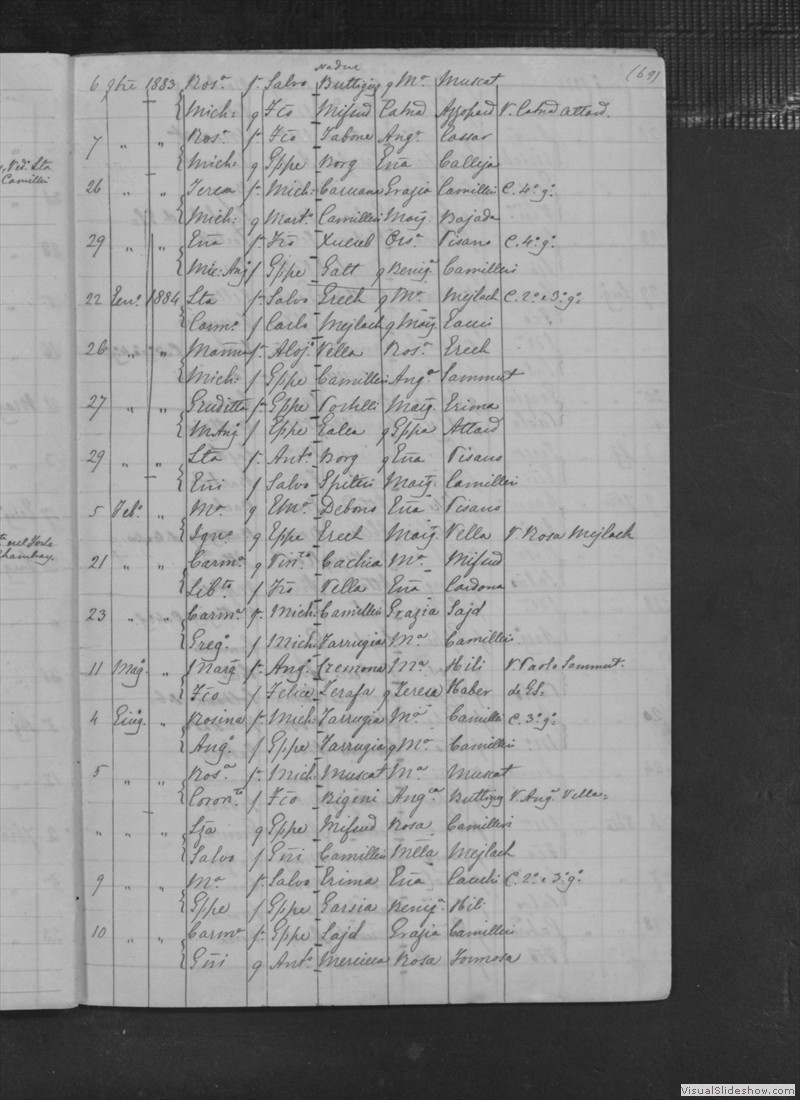 Nadur
(69)
6 9bre 1883 Rosa f. Salvo Buttigieg q Ma Muscat
Mich: q Fco Mifsud Catna Azzopard V. Catna Attard.
7 " " Rosa f. Fco Tabone Anga Cassar
Mich: q Gppe Borg Ena Calleja
Vida Sta
Camilleri
26 " " Teresa f. Mich: Caruana Grazia Camilleri C. 4o go
Mich: q Mart. Camilleri Marg. Bajada
29 " " Ena f. Fco Xuereb Orsa Pisano C. 4o go
Mic: Ang f Gppe Gatt q Benig. Camilleri
22 Genn. 1884 Sta f. Salvo Grech q Ma Mejlach C. 2o e 3o go
Carmo f Carlo Mejlach q Marg Cauci
26 " " f. Aloj. Vella Rosa Grech
Mich: f Gppe Camilleri Anga Sammut
27 " " Giuditta f. Gppe Portelli Marg. Grima
M. Ang f Gppe Galea q Gppa Attard
29 " " Sta f. Anto Borg q Ena Pisano
Gni f Salvo Spiteri Marg. Camilleri
5 Feb. " Ma q Debono Ena Pisano
Igno q Gppe Grech Marg Vella V Rosa Mejlach
nel Forte
Chambray
21 " " Carma q Cachia Ma Mifsud
Libto f Fco Vella Ena Cardona
23 " " Carma f. Mich: Camilleri Grazia Sajd
Grego f Mich Farrugia Ma Camilleri
11 Mag. " Marg f. Ang. Cremona Ma Hili V. Paolo Sammut.
Fco f Felice Zerafa q Teresa Haber
4 Giug. " Rosina f. Mich: Farrugia Ma Camilleri C. 3o go
Ang. f Gppe Farrugia q Ma Camilleri
5 " " Rosa f. Mich Muscat Ma Muscat
Coronto f Fco Bigeni Anga Buttigieg V. Ang. Vella
" " " Sta q Gppe Mifsud Rosa Camilleri
Salvo f Gni Camilleri Mella Mejlach
9 " " Ma f. Salvo Grima Ena Cauchi C. 2o e 3o go
Gppe f Gppe Garsia Benig. Hili
10 " " Carma f. Gppe Sajd Grazia Camilleri
Gni q Anto Mercieca Rosa Formosa
VisualSlideshow.com